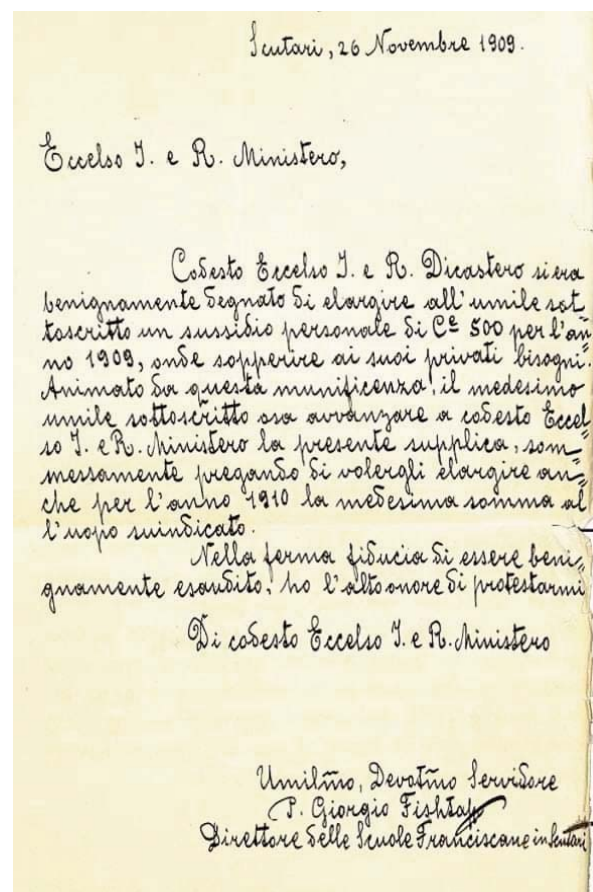 Scutari, 26 Novembre 1909.
Eccelso I. e R. Ministero,
Codesto Eccelso I. e R. Dicastero si era
benignamente degnato di elargire all'umile sot=
toscritto un sussidio personale di Cᵉ 500 per l'an=
no 1909, onde sopperire ai suoi privati bisogni.
Animato da questa munificenza, il medesimo
umile sottoscritto osa avvanzare a codesto Eccel=
so I. e R. Ministero la presente supplica, som=
messamente pregando di volergli elargire an=
che per l'anno 1910 la medesima somma al=
l'uopo suindicato.
Nella ferma fiducia di essere beni=
gnamente esaudito, ho l'alto onore di protestarmi
Di codesto Eccelso I. e R. Ministero
Umilm̃o, Devotm̃o Servidore
P. Giorgio Fishta
Direttore delle Scuole Franciscane in Scutari